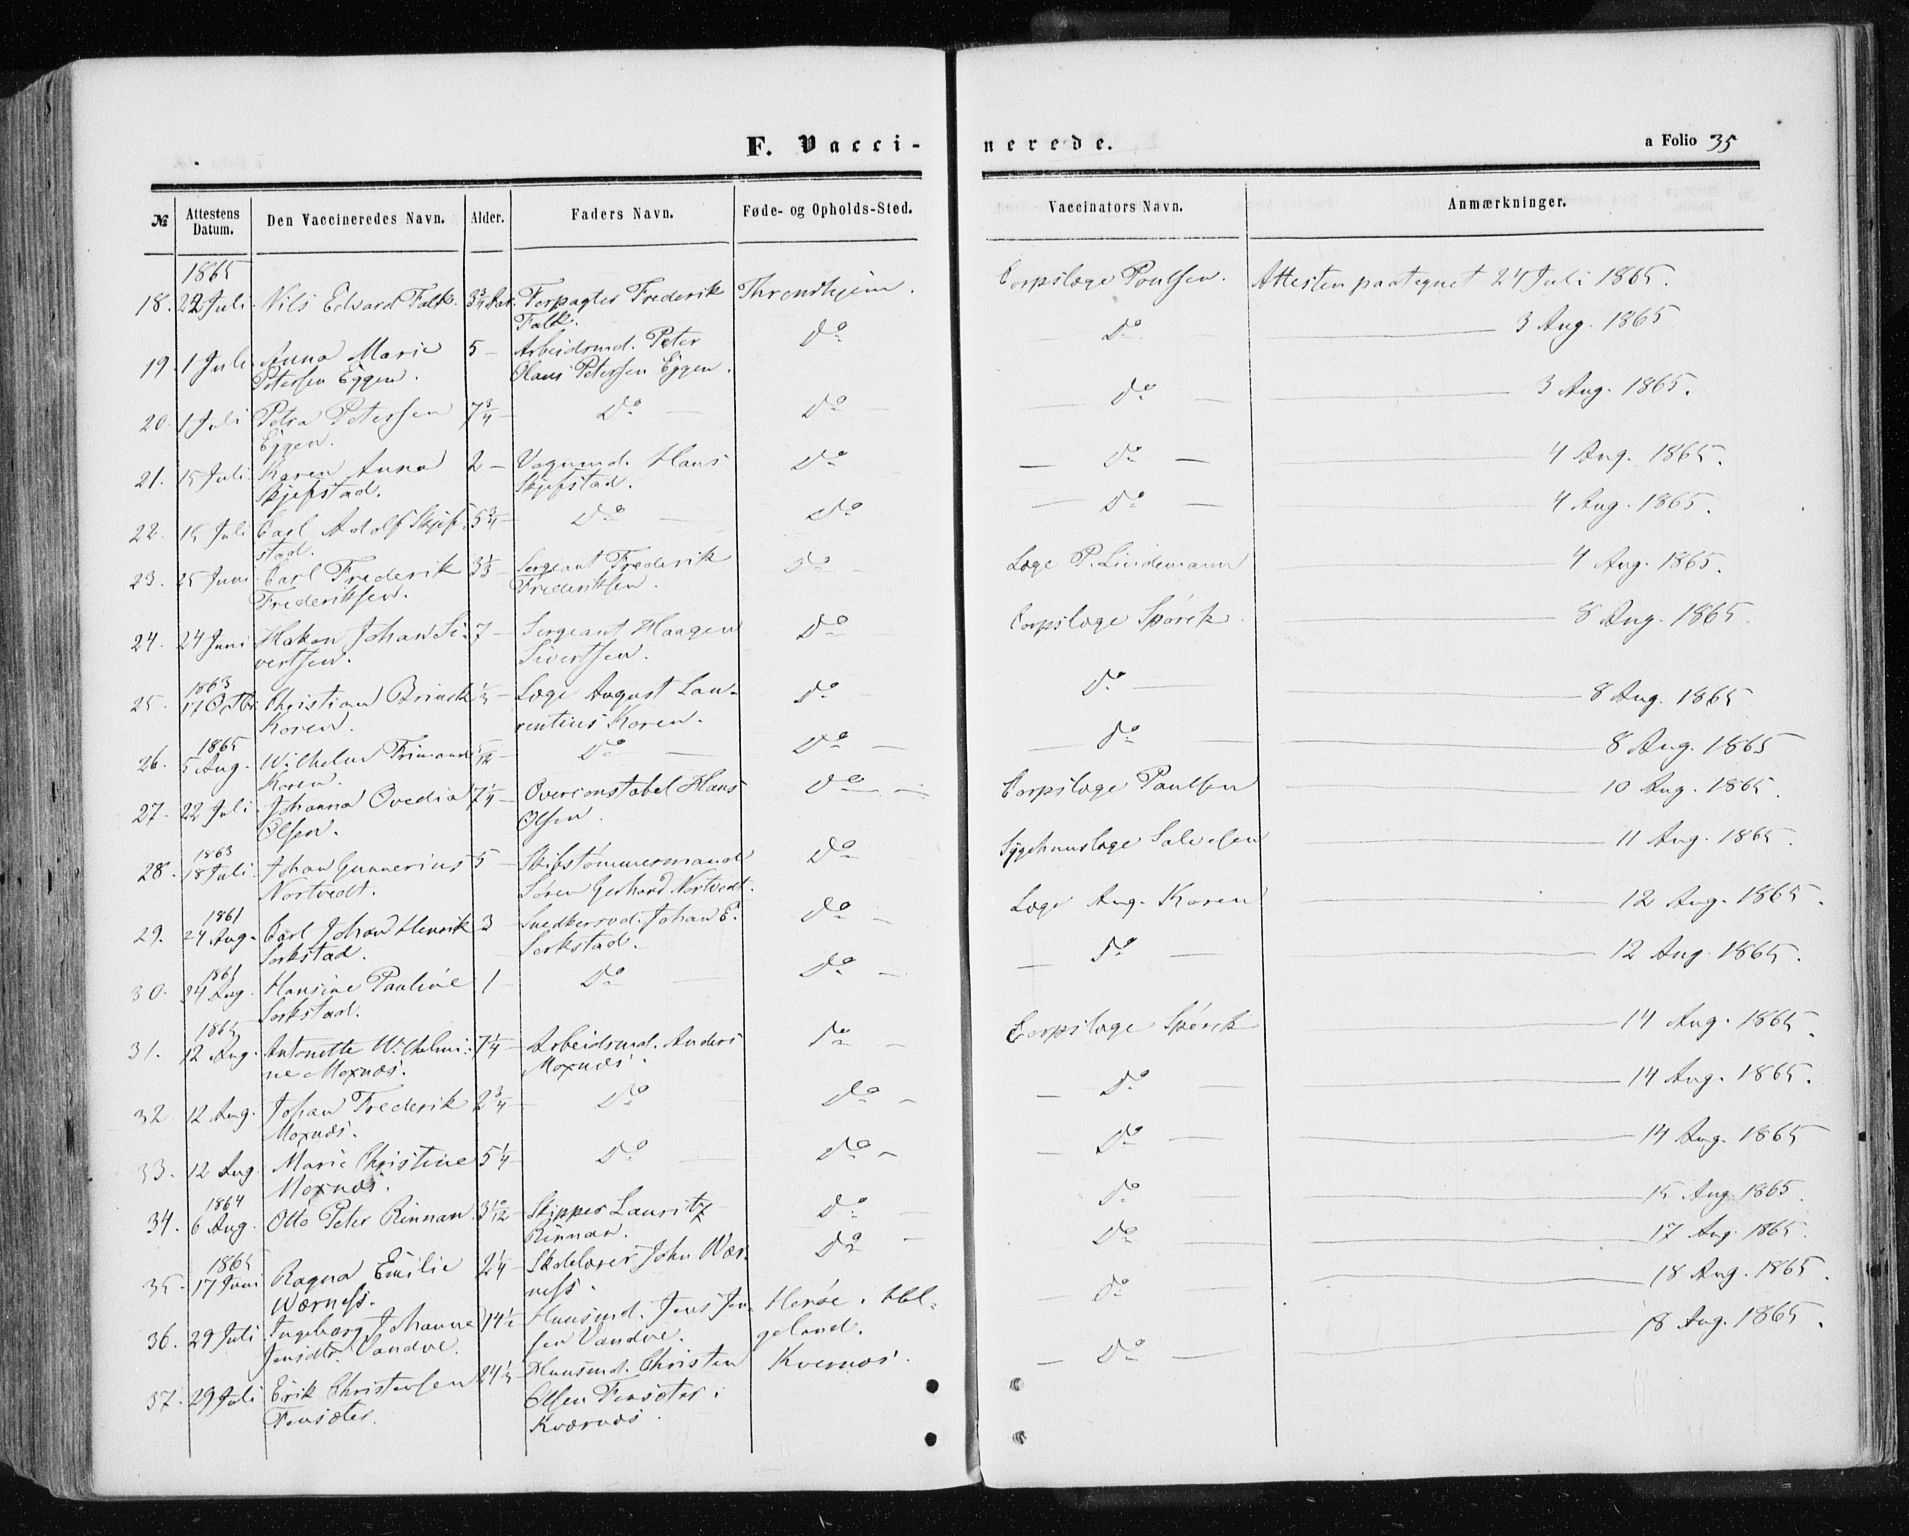 F. Vacci-nerede.
a Folio 35
№ Attestens Datum. Den Vaccineredes Navn. Alder. Faders Navn. Føde- og Opholds-Sted. Vaccinators Navn. Anmærkninger.
1865
18. 22 Juli Nils Edvard Falk. 3 3/4 Aar. Forpagter Frederik Throndhjem. Corpslæge Poulsen. Attesten paategnet 24 Juli 1865.
Falk.
19. 1 Juli Anna Marie 5 – Arbeidsmd. Peter Do Do 3 Aug. 1865
Petersen Eggen. Olaus Petersen Eggen.
20. 1 Juli Petra Petersen 7 3/4 – Do – Do – – Do – 3 Aug. 1865.
Eggen.
21. 15 Juli Karen Anna 2 – Vognmd. Hans Do – Do – 4 Aug. 1865.
Skjefstad. Skjefstad.
22. 15 Juli Carl Adolf Skjef- 5 3/4 – Do – Do – Do – 4 Aug. 1865.
stad.
23. 25 Juni Carl Frederik 3 1/3 – Sergeant Frederik Do – Læge P. Lindemann 4 Aug. 1865.
Frederiksen. Frederiksen.
24. 24 Juni Hakon Johan Si- 7 – Sergeant Haagen Do – Corpslæge Spörck. 8 Aug. 1865
vertsen. Sivertsen.
1863
25. 17 Octbr. Christian Brinck 1/3 – Læge August Lau- Do – Do – 8 Aug. 1865
Koren. rentius Koren.
1865
26. 5 Aug. Wilhelm Frimann /12 – Do – Do – – Do – 8 Aug. 1865
Koren.
27. 22 Juli Johanna Ovedia 7 1/4 – Overconstabel Hans Do – Corpslæge Paulsen 10 Aug. 1865.
Olsen. Olsen.
1863
28. 18 Juli. Johan Gunnerius 5 – Skibstömmermand Do Sygehuuslæge Salvesen 11 Aug. 1865.
Nortvedt. Sören Gerhard Nortvedt.
1861
29. 24 Aug. Carl Johan Henrik 3 – Snedkersvd. Johan E. Do – Læge Aug. Koren 12 Aug. 1865.
Sorkstad. Sorkstad.
1861
30. 24 Aug. Hansine Pauline 1 – Do – Do – – Do – 12 Aug. 1865.
Sorkstad.
1865
31. 12 Aug. Antonette Wilhelmi- 7 1/4 – Arbeidsmd. Anders Do – Corpslæge Spörck 14 Aug. 1865.
ne Moxnæs. Moxnæs.
32 12 Aug. Johan Frederik 2 3/4 – Do – Do – – Do – 14 Aug. 1865.
Moxnæs.
33. 12 Aug. Marie Christine 5 1/4 – Do – Do – – Do – 14 Aug. 1865
Moxnæs.
1864
34. 6 Aug. Otto Peter Rinnan. 3 10/12 – Skipper Lauritz Do – Do – 15 Aug. 1865.
Rinnan.
1865
35. 17 Juni Ragna Emilie 2 1/4 – Skolelærer John Wær- Do – Do – 17 Aug. 1865.
Wærness. ness.
36. 29 Juli Ingeborg Johanne 14 1/2 Huusmd. Jens Jen- Heröe i Hel- – Do – 18 Aug. 1865.
Jensdtr. Vandve. sen Vandve. geland.
37. 29 Juli Erik Christensen 24 1/2 – Huusmd. Christen Kvernæs. – Do – 18 Aug. 1865.
Fensæter. Olsen Fensæter i
Kværnæs.